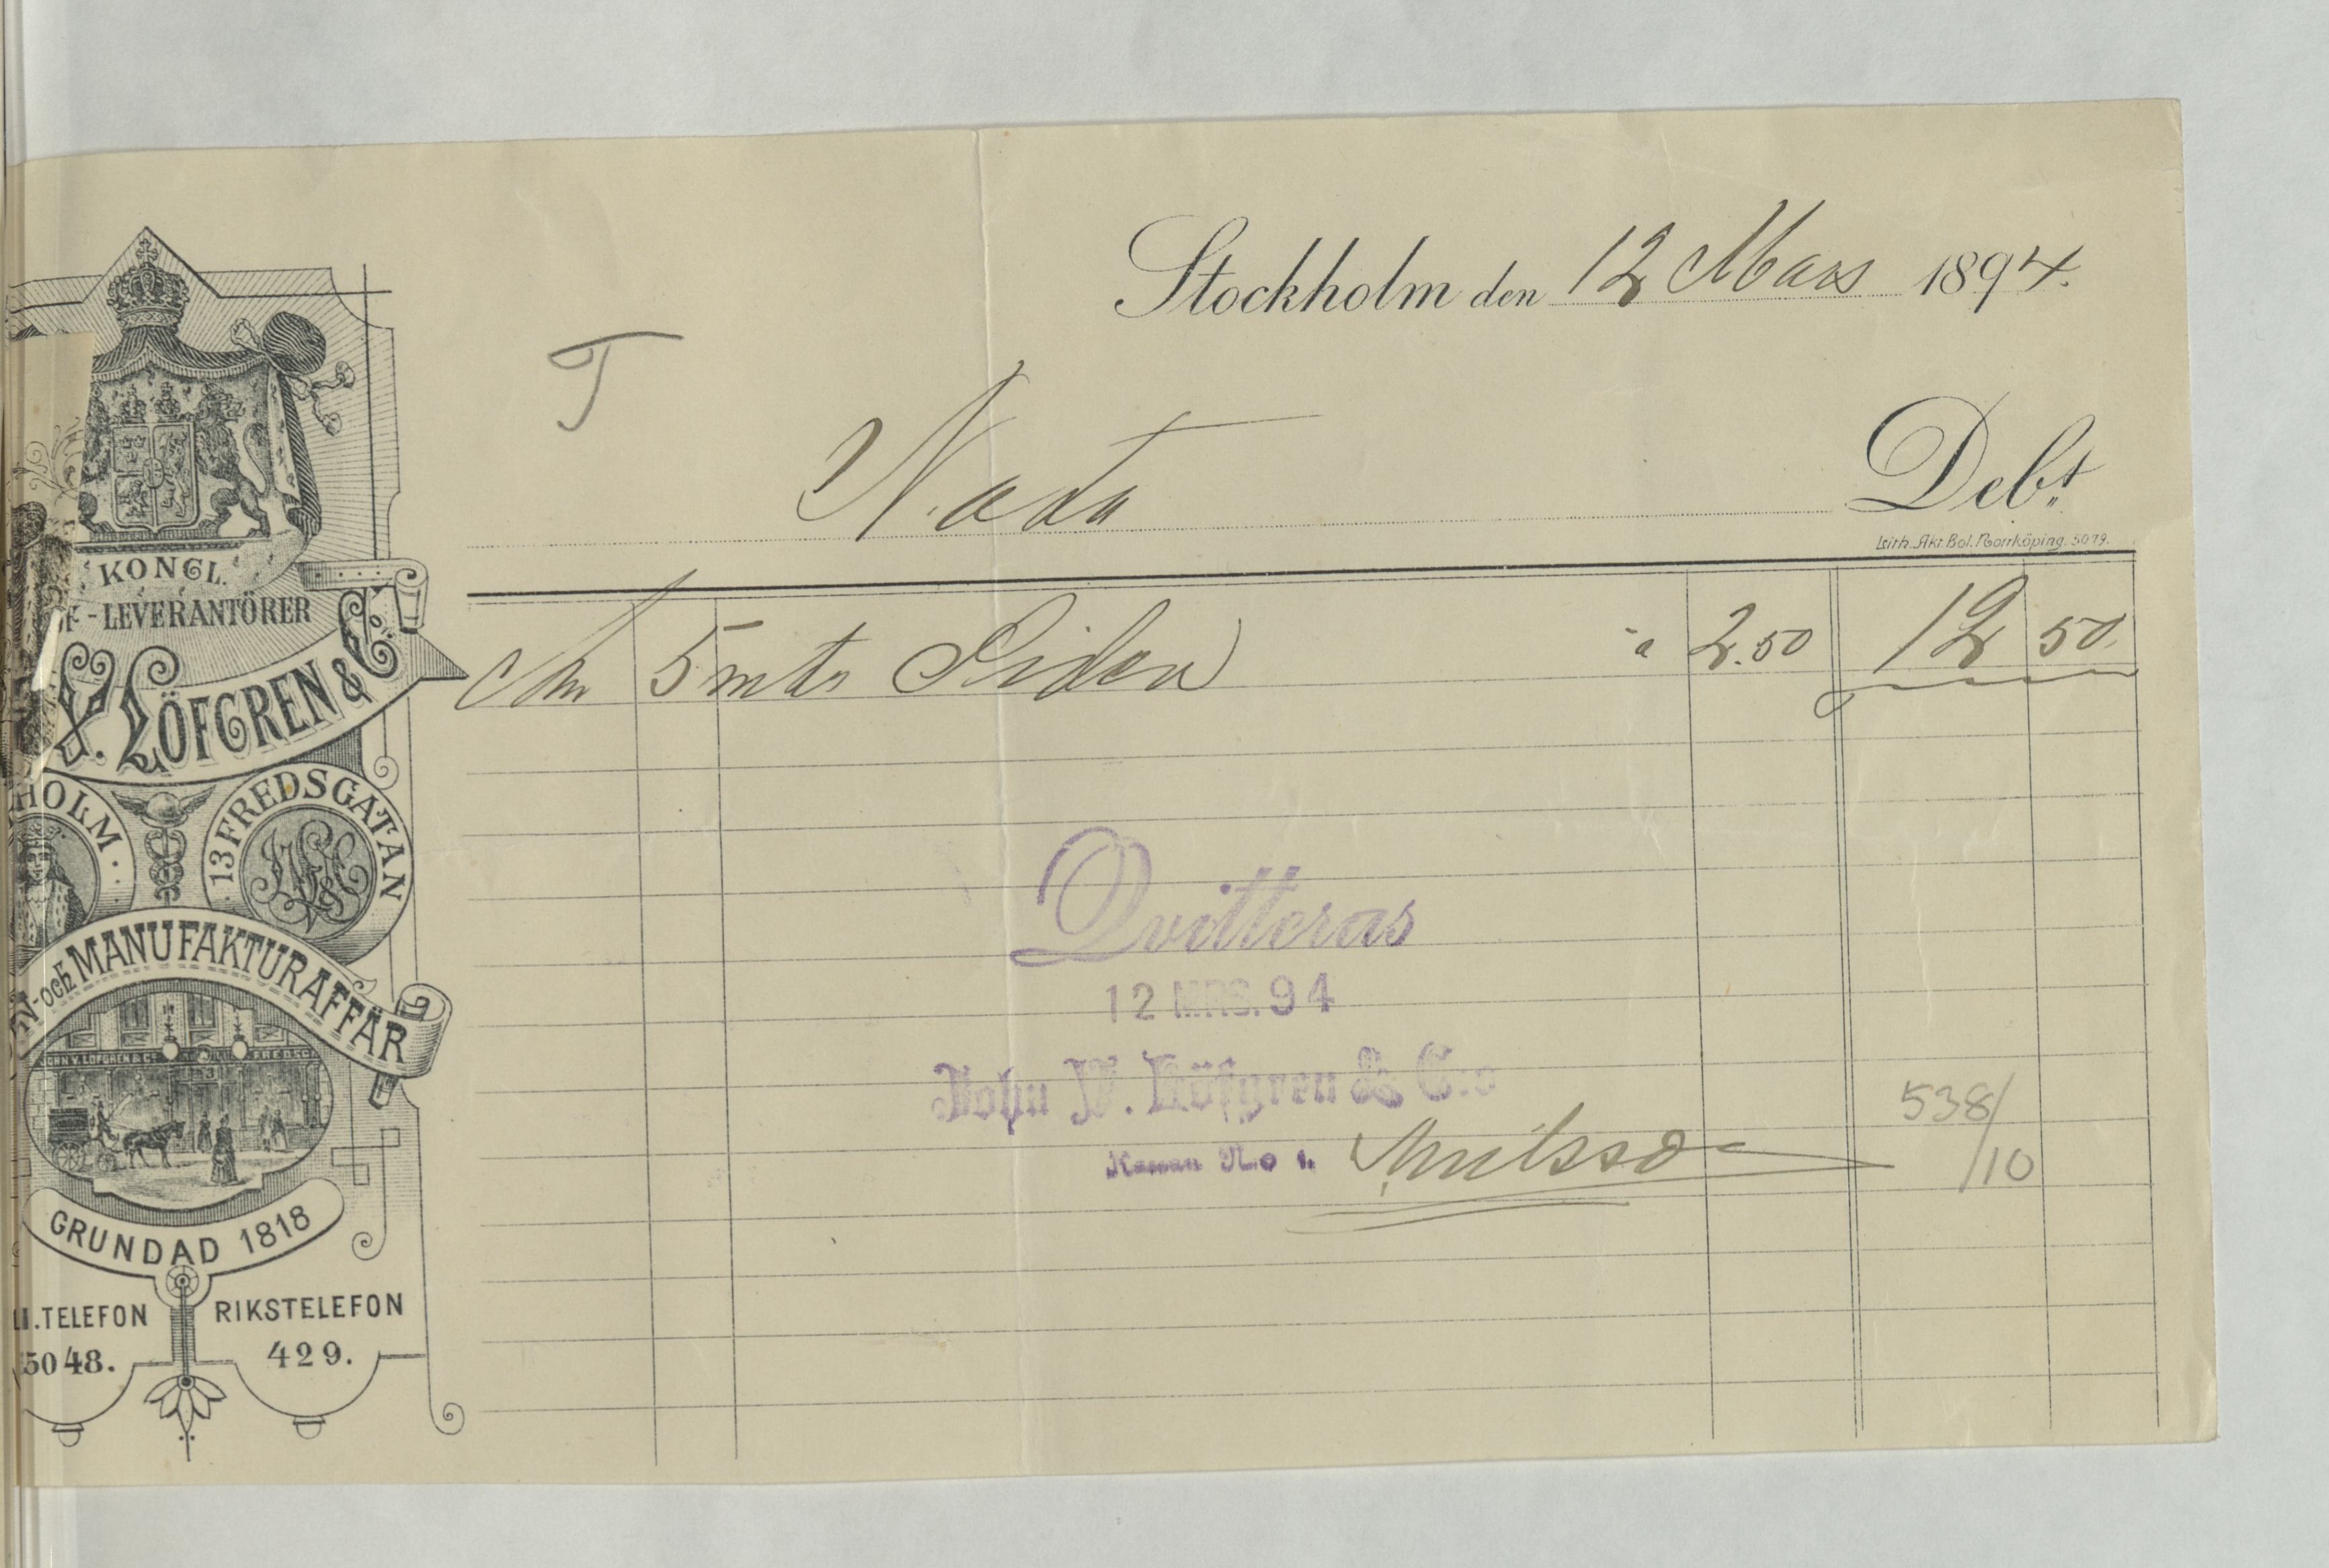 KONGL.
-LEVERANTÖRER
V. LÖFGREN & Co
HOLM.
13 FREDSGATAN
och MANUFAKTURAFFÄR
JOHN V. LÖFGREN & Co
GRUNDAD 1818
TELEFON
5048.
RIKSTELEFON
429.
Stockholm den 12 Mars 1894.
T
Nota
Debt
Lith. Akt. Bol. Norrköping. 5079.
5 mtr Siden à 2.50 12 50
Qvitteras
12 MRS. 94
John V. Löfgren & C:o
Kassan No 1.
538/10